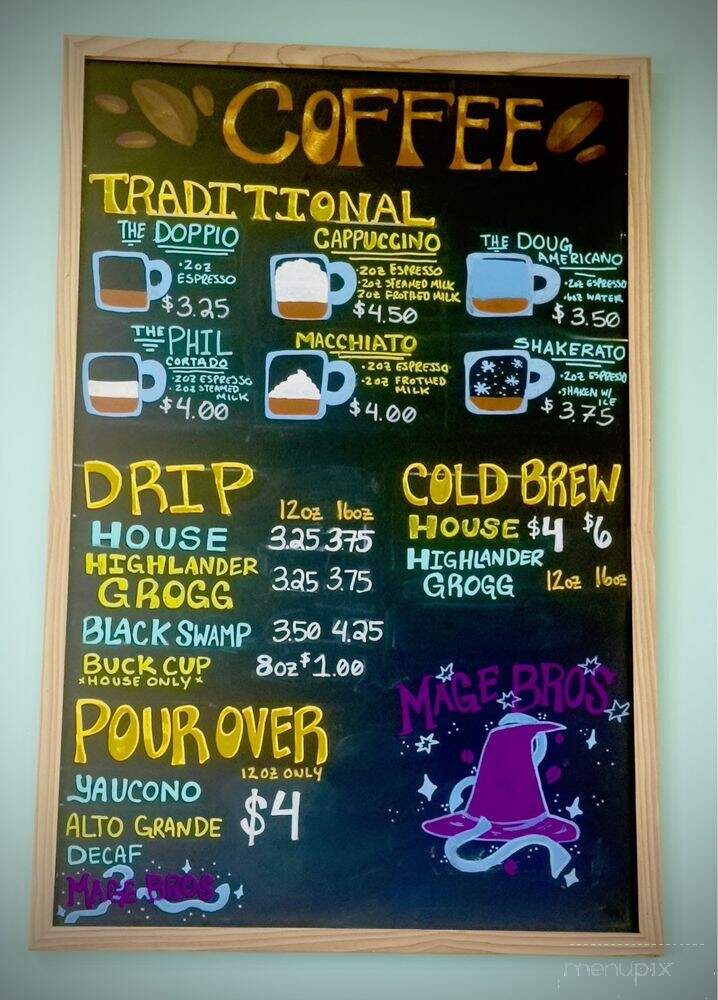 COFFEE
TRADITIONAL
THE DOPPIO
•2oz
ESPRESSO
$3.25
CAPPUCCINO
•2oz ESPRESSO
•2oz STEAMED MILK
2oz FROTHED MILK
$4.50
THE DOUG
AMERICANO
•2oz ESPRESSO
•6oz WATER
$3.50
THE PHIL
CORTADO
•2oz ESPRESSO
•2oz STEAMED
MILK
$4.00
MACCHIATO
•2oz ESPRESSO
•2oz FROTHED
MILK
$4.00
SHAKERATO
•2oz ESPRESSO
•SHAKEN W/
ICE
$3.75
DRIP
12oz 16oz
HOUSE 3.25 3.75
HIGHLANDER
GROGG 3.25 3.75
BLACK SWAMP 3.50 4.25
BUCK CUP 8oz $1.00
*HOUSE ONLY*
COLD BREW
HOUSE $4 $6
HIGHLANDER
GROGG 12oz 16oz
POUR OVER
12oz ONLY
YAUCONO
ALTO GRANDE $4
DECAF
MAGE BROS
MAGE BROS
menupix